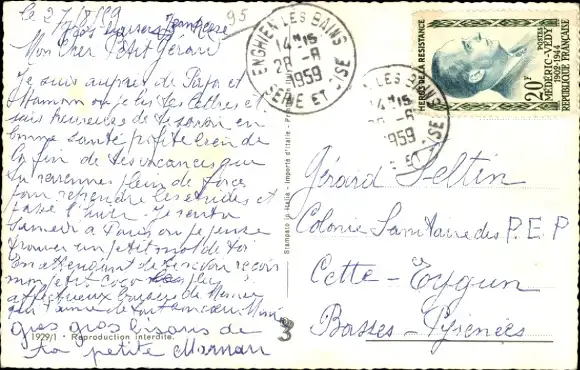 le 27/8/59
95
Mon cher Petit Gérard
Je suis auprès de Papa et
Maman ou je lis tes lettres et
suis heureuse de te savoir en
bonne santé profite bien de
la fin de tes vacances que
tu reviennes plein de forces
pour reprendre les études et
passe l'hiver. Je rentre
Samedi à Paris ou je pense
trouver un petit mot de toi
En attendant de te revoir reçois
mon petit coco
affectueux de Mémé
qui t'aime de tout
gros gros bisous de
ta petite Maman
1929/1 - Reproduction interdite.
Stampato in Italia - Importé d'Italie
3
ENGHIEN LES BAINS
14 H 15
28 - 8
1959
SEINE ET OISE
LES BAINS
14 H 15
8
1959
OISE
HEROS DE LA RESISTANCE
20F
MÉDÉRIC-VÉDY
1902-1944
POSTES
REPUBLIQUE FRANÇAISE
Gérard Feltin
Colonie Sanitaire des P.E.P
Cette-Eygun
Basses-Pyrénées